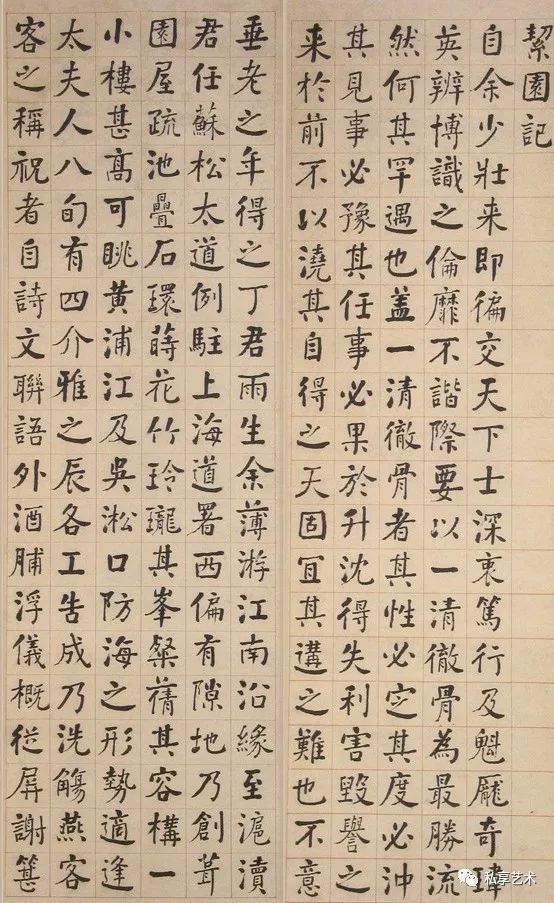 絜園記
自余少壯来即徧交天下士深衷篤行及魁龎奇瑋
英辨博識之倫靡不諧際要以一清徹骨為最勝流
然何其罕遇也盖一清徹骨者其性必定其度必沖
其見事必豫其任事必果於升沈得失利害毀譽之
来於前不以澆其自得之天固宜其遘之難也不意
垂老之年得之丁君雨生余薄游江南沿緣至滬瀆
君任蘇松太道例駐上海道署西偏有隙地乃創葺
園屋疏池疊石環蒔花竹玲瓏其峯粲蒨其容構一
小樓甚高可眺黄浦江及吳淞口防海之形勢適逢
太夫人八旬有四介雅之辰各工告成乃洗觴燕客
客之稱祝者自詩文聯語外酒脯浮儀概從屏謝筵
私享艺术